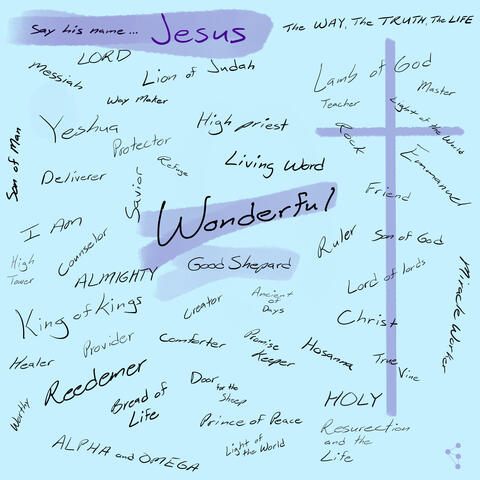 Say his name... Jesus
The WAY, The TRUTH, The LIFE
LORD
Messiah
Lion of Judah
Lamb of God
Way Maker
Teacher
Master
Light of the World
Son of Man
Yeshua
Protector
High priest
Rock
Emmanuel
Refuge
Living Word
Deliverer
Savior
Friend
Wonderful
I Am
Counselor
Ruler
Son of God
High
Tower
ALMIGHTY
Good Shepard
Lord of lords
Miracle Worker
King of Kings
Creator
Ancient
of
Days
Christ
Healer
Provider
Comforter
Promise
Keeper
Hosanna
True
Vine
Redeemer
Worthy
Bread of
Life
Door
for the
Sheep
HOLY
Prince of Peace
ALPHA and OMEGA
Light of
the World
Resurection
and the
Life